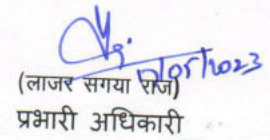 10/05/2023
(लाजर सगया राज)
प्रभारी अधिकारी